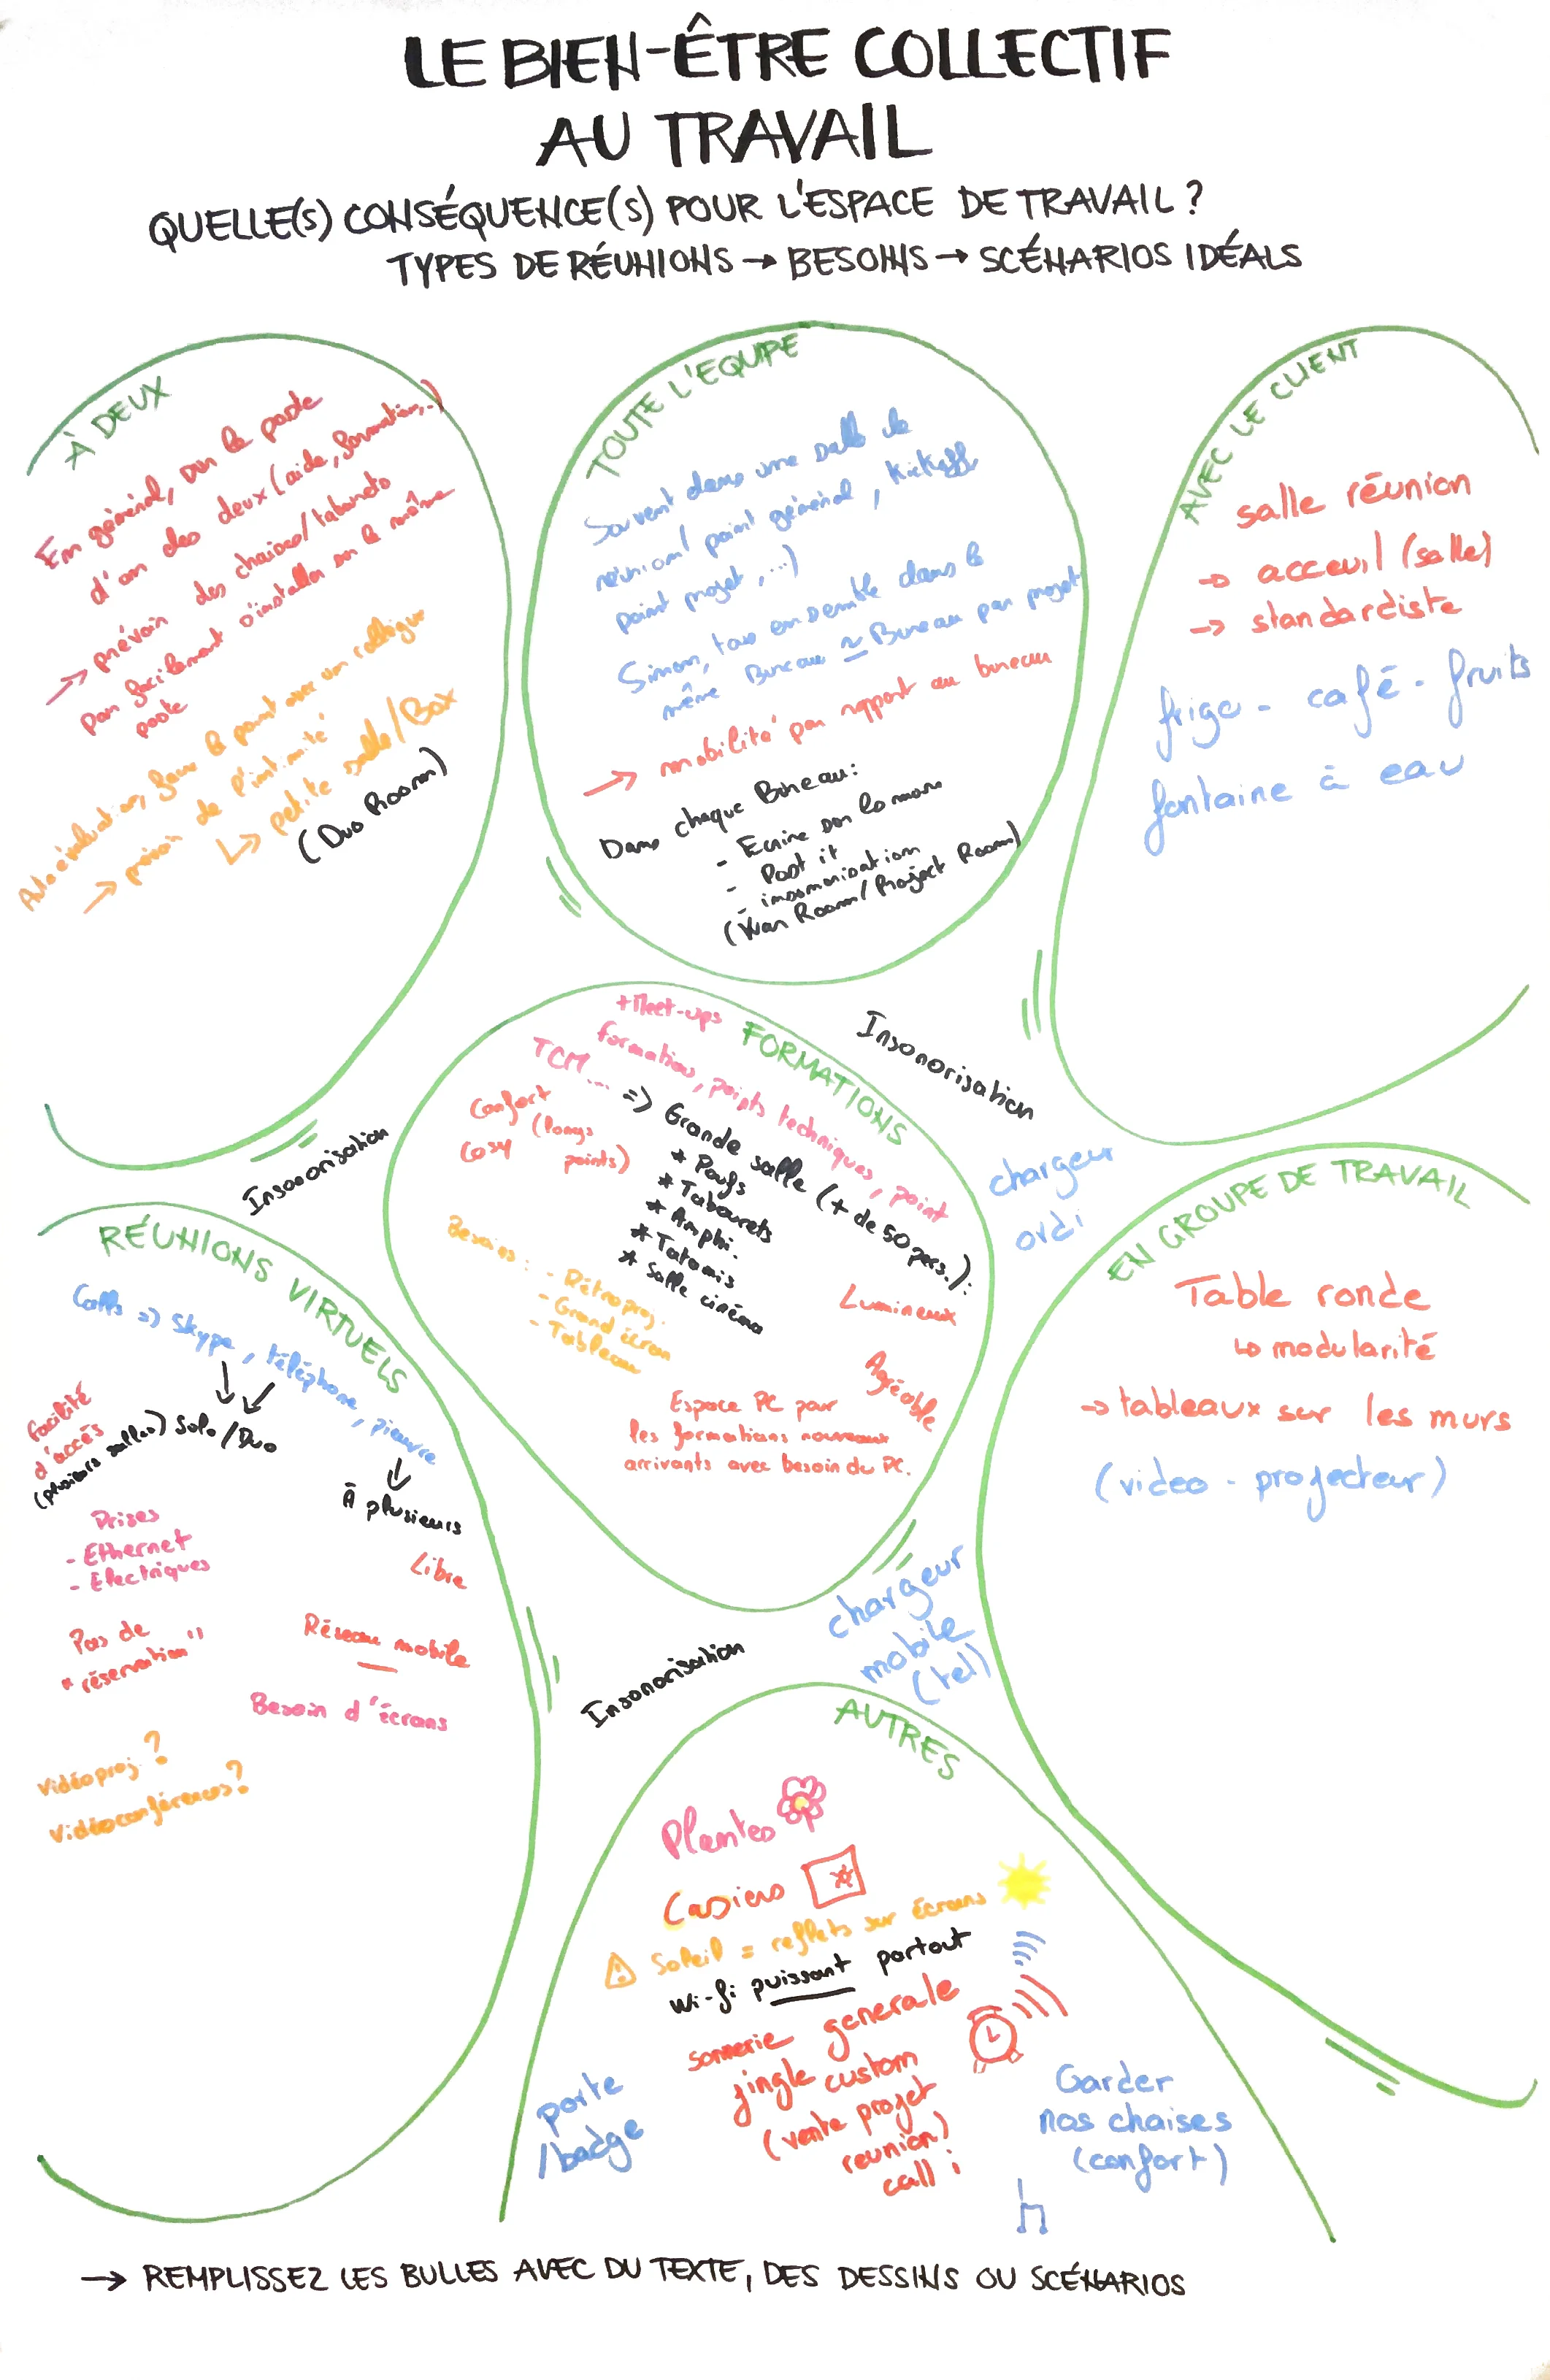 LE BIEN-ÊTRE COLLECTIF
AU TRAVAIL
QUELLE(S) CONSÉQUENCE(S) POUR L'ESPACE DE TRAVAIL ?
TYPES DE RÉUNIONS → BESOINS → SCÉNARIOS IDÉALS
À DEUX
En général, sur le poste
d'un des deux (aide, formation,..)
→ prévoir des chaises/tabourets
pour facilement s'installer sur le même
poste
Auto évaluation, faire le point avec un collègue
→ prévoir de l'intimité
↳ petite salle/Box
(Duo Room)
TOUTE L'EQUIPE
Souvent dans une salle de
réunion (point général, Kickoff,
point projet, ...)
Sinon, tous ensemble dans le
même Bureau ≃ Bureau par projet
→ mobilité par rapport au bureau
Dans chaque Bureau:
- Ecrire son les murs
- Post it
- insonorisation
(War Room/Project Room)
AVEC LE CLIENT
salle réunion
→ acceuil (salle)
→ standardiste
frigo - café - fruits
fontaine à eau
Insonorisation
FORMATIONS
+Meet-ups
formations, points techniques, point
TCM ...
=> Grande salle (+ de 50 pers.):
* Poufs
* Tabourets
* Amphi.
* Tatamis
* Salle cinéma
Confort (longs
cosy points)
Besoins : - Rétroproj.
- Grand écran
- Tableau
Lumineux
Agréable
Espace PC pour
les formations nouveaux
arrivants avec besoin du PC.
Insonorisation
chargeur
ordi
EN GROUPE DE TRAVAIL
Table ronde
↳ modularité
→ tableaux sur les murs
(video - projecteur)
RÉUNIONS VIRTUELS
Calls => Skype, téléphone, pieuvre
facilité
d'accès
(plusieurs salles) Solo/Duo
À plusieurs
Prises
- Ethernet
- Electriques
Libre
Pas de
"réservation"
Réseau mobile
Besoin d'écrans
Vidéoproj ?
Vidéoconférences ?
Insonorisation
chargeur
mobile
(tel)
AUTRES
Plantes
Casiers
Soleil = reflets sur écrans
Wi-fi puissant partout
sonnerie generale
jingle custom
(vente projet
reunion)
call !
porte
/badge
Garder
nos chaises
(confort)
→ REMPLISSEZ LES BULLES AVEC DU TEXTE, DES DESSINS OU SCÉNARIOS